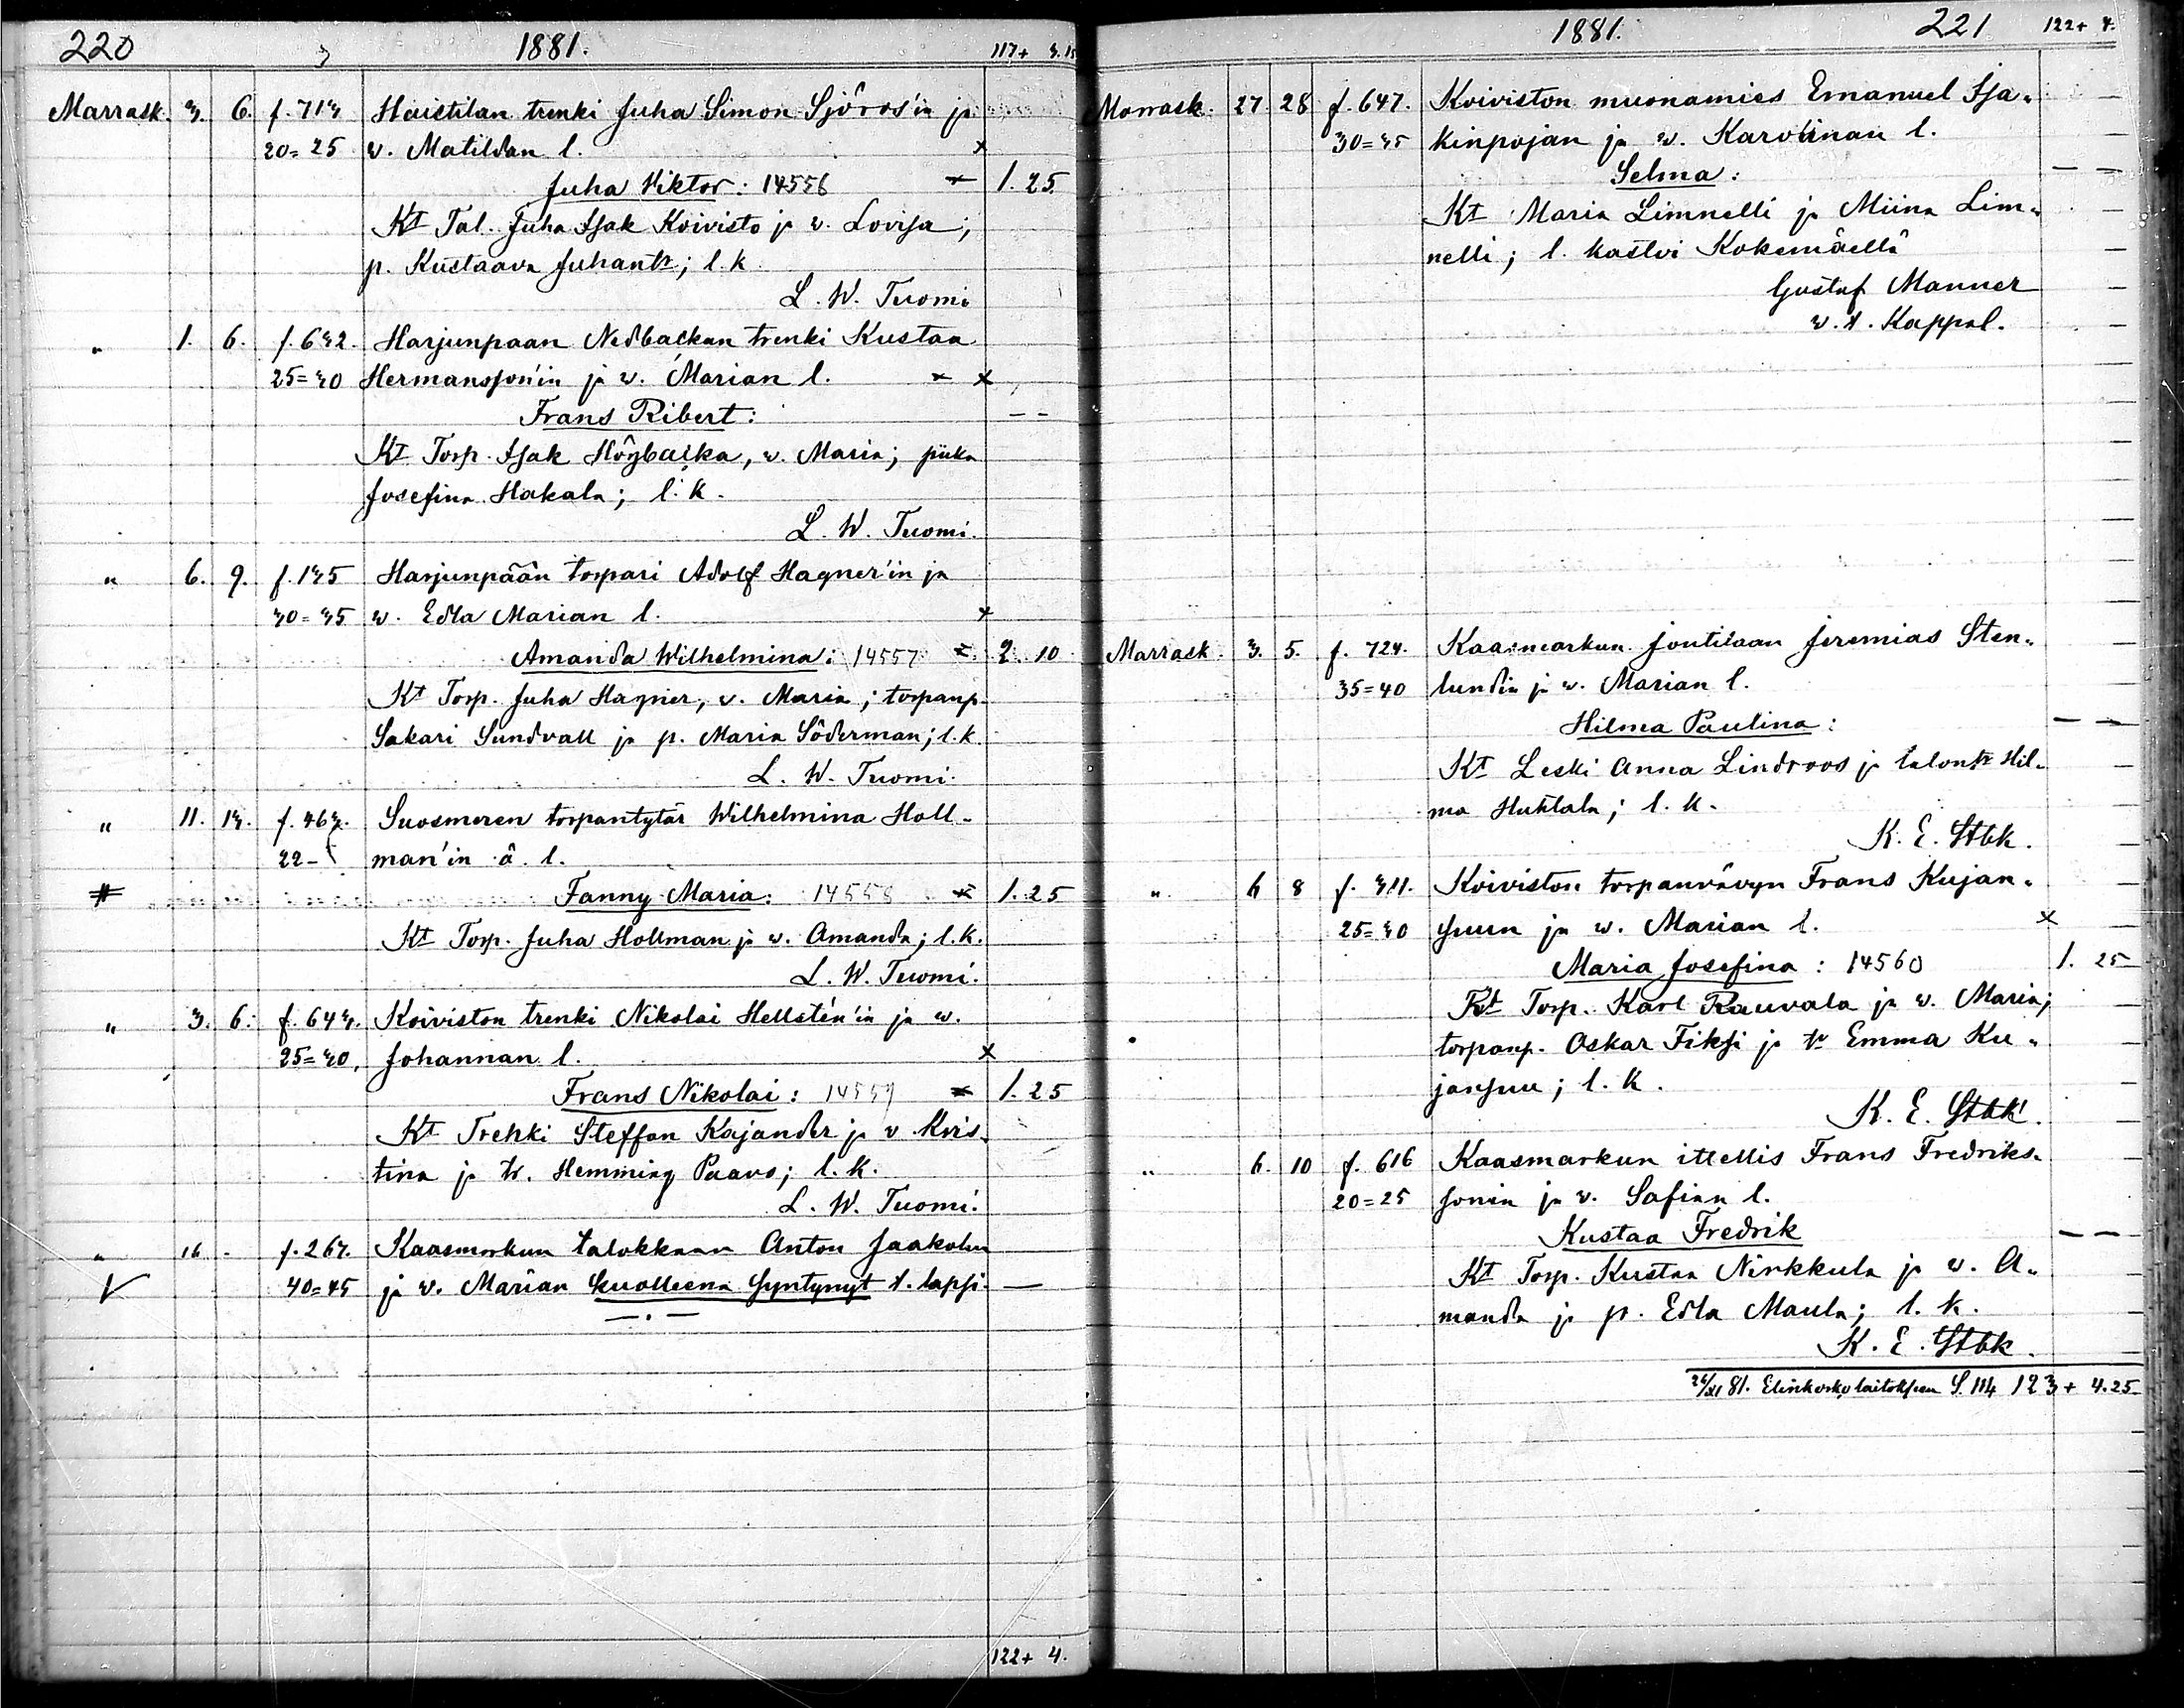 220 1881. 117+ 3.15
Marrask. 3. 6. f. 713 Haistilan trenki Juha Simon Sjöros'in ja
20=25 w. Matildan l. x
Juha Viktor: 14556 x 1. 25.
Kt Tal. Juha Isak Koivisto ja w. Lovisa;
p. Kustaava Juhantr; l. k.
L. W. Tuomi
" 1. 6. f. 632. Harjunpään Nedbackan trenki Kustaa
25=30 Hermansson'in ja w. Marian l. x x
Frans Ribert: - -
Kt Torp. Isak Högbacka, w. Maria; piika
Josefina Hakala; l. k.
L. W. Tuomi.
" 6. 9. f. 135 Harjunpään torpari Adolf Hagner'in ja
30=35 w. Edla Marian l. x
Amanda Wilhelmina: 14557 x 2. 10
Kt Torp. Juha Hagner, w. Maria; torpanp.
Sakari Sundvall ja p. Maria Söderman; l. k.
L. W. Tuomi.
" 11. 13. f. 463. Suosmeren torpantytär Wilhelmina Holl-
22- man'in ä. l.
# Fanny Maria: 14558 x 1. 25
Kt Torp. Juha Hollman ja w. Amanda; l. k.
L. W. Tuomi.
" 3. 6. f. 643. Koiviston trenki Nikolai Hellstén'in ja w.
25=30, Johannan l. x
Frans Nikolai: 14559 x 1. 25
Kt Trenki Steffan Kajander ja w Kris-
tina ja tr. Hemming Paavo; l. k.
L. W. Tuomi.
" 16 - f. 267. Kaasmarkun talokkaan Anton Jaakolan
V 40=45 ja w. Marian kuolleena syntynyt t. lapsi. —
122+ 4.
1881. 221 122+ 4.
Marrask. 27 28 f. 647. Koiviston muonamies Emanuel Isa-
30=35 kinpojan ja w. Karolinan l.
Selma: — —
Kt Maria Limnelli ja Miina Lim-
nelli; l. kastoi Kokemäellä
Gustaf Manner
v. t. Kappal.
Marrask. 3. 5. f. 724. Kaasmarkun joutilaan Jeremias Sten-
35=40 lundin ja w. Marian l.
Hilma Paulina: — —
Kt Leski Anna Lindroos ja talontr Hil-
ma Huhtala; l. k.
K. E. Stbk.
" 6 8 f. 311. Koiviston torpanvävyn Frans Kujan-
25=30 suun ja w. Marian l. x
Maria Josefina: 14560 1. 25
Kt Torp. Karl Rauvala ja w. Maria;
torpanp. Oskar Fiksi ja tr Emma Ku-
jansuu; l. k.
K. E. Stbk.
" 6. 10 f. 616 Kaasmarkun itellis Frans Fredriks-
20=25 sonin ja w. Sofian l.
Kustaa Fredrik — —
Kt Torp. Kustaa Nirkkula ja w. A-
manda ja p. Edla Maula; l. k.
K. E. Stbk.
26/XI 81. Elinkorkolaitoksen S. 114 123+ 4.25